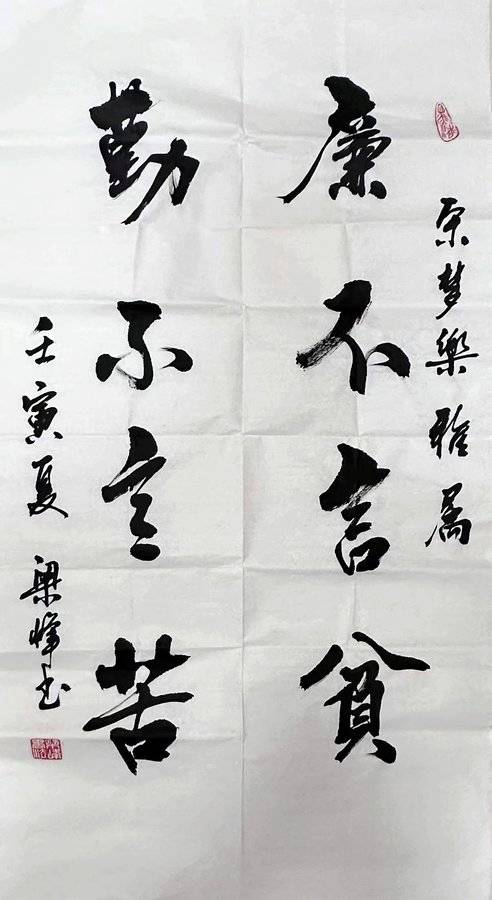 梦樂雅属
廉不言貧
勤不言苦
壬寅夏 梁峰书